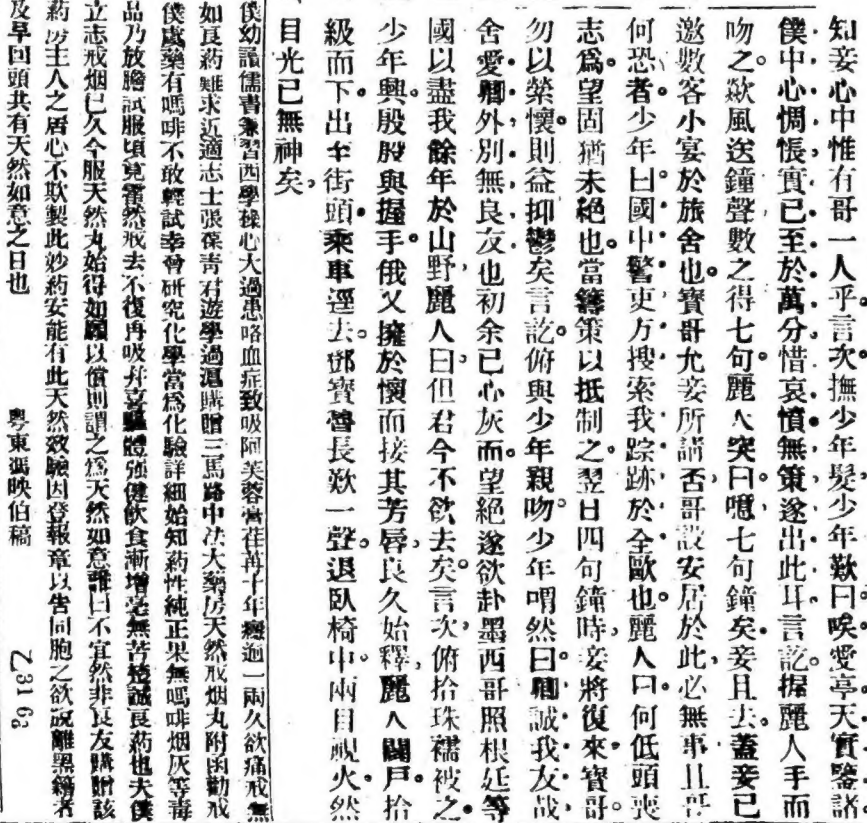 知妾心中惟有哥一人乎言次撫少年髮少年歎曰唉愛亭天實鑒諸
僕中心惆悵實已至於萬分惜哀憤無策遂出此耳言訖握麗人手而
吻之歘風送鐘聲數之得七句麗人突曰噫七句鐘矣妾且去蓋妾已
邀數客小宴於旅舍也寶哥允妾所請否哥設安居於此必無事且哥
何恐者少年曰國中警吏方搜索我踪跡於全歐也麗人曰何低頭喪
志爲望固猶未絕也當籌策以抵制之翌日四句鐘時妾將復來寶哥
勿以縈懷則益抑鬱矣言訖俯與少年親吻少年喟然曰卿誠我友哉
舍愛卿外別無良友也初余已心灰而望絕遂欲赴墨西哥照根廷等
國以盡我餘年於山野麗人曰但君今不欲去矣言次俯拾珠襦被之
少年興殷殷與握手俄又擁於懷而接其芳唇良久始釋麗人闢戶拾
級而下出至街頭乘車逕去鄧寶魯長歎一聲退臥椅中兩目視火然
目光已無神矣
僕幼讀儒書兼習西學操心太過患咯血症致吸阿芙蓉膏荏苒十年癮逾一兩久欲痛戒無
如良葯難求近適志士張葆青君遊學過滬購贈三馬路中法大藥房天然戒烟丸附函勸戒
僕處藥有嗎啡不敢輕試幸曾研究化學當爲化驗詳細始知葯性純正果無嗎啡烟灰等毒
品乃放膽試服頃竟霍然戒去不復再吸幷喜軀體強健飲食漸增毫無苦楚誠良葯也夫僕
立志戒烟已久今服天然丸始得如願以償則謂之爲天然如意誰曰不宜然非良友購贈該
葯房主人之居心不欺製此妙葯安能有此天然效驗因登報章以告同胞之欲脫離黑籍者
及早回頭共有天然如意之日也 粵東馮映伯稿 乙3163